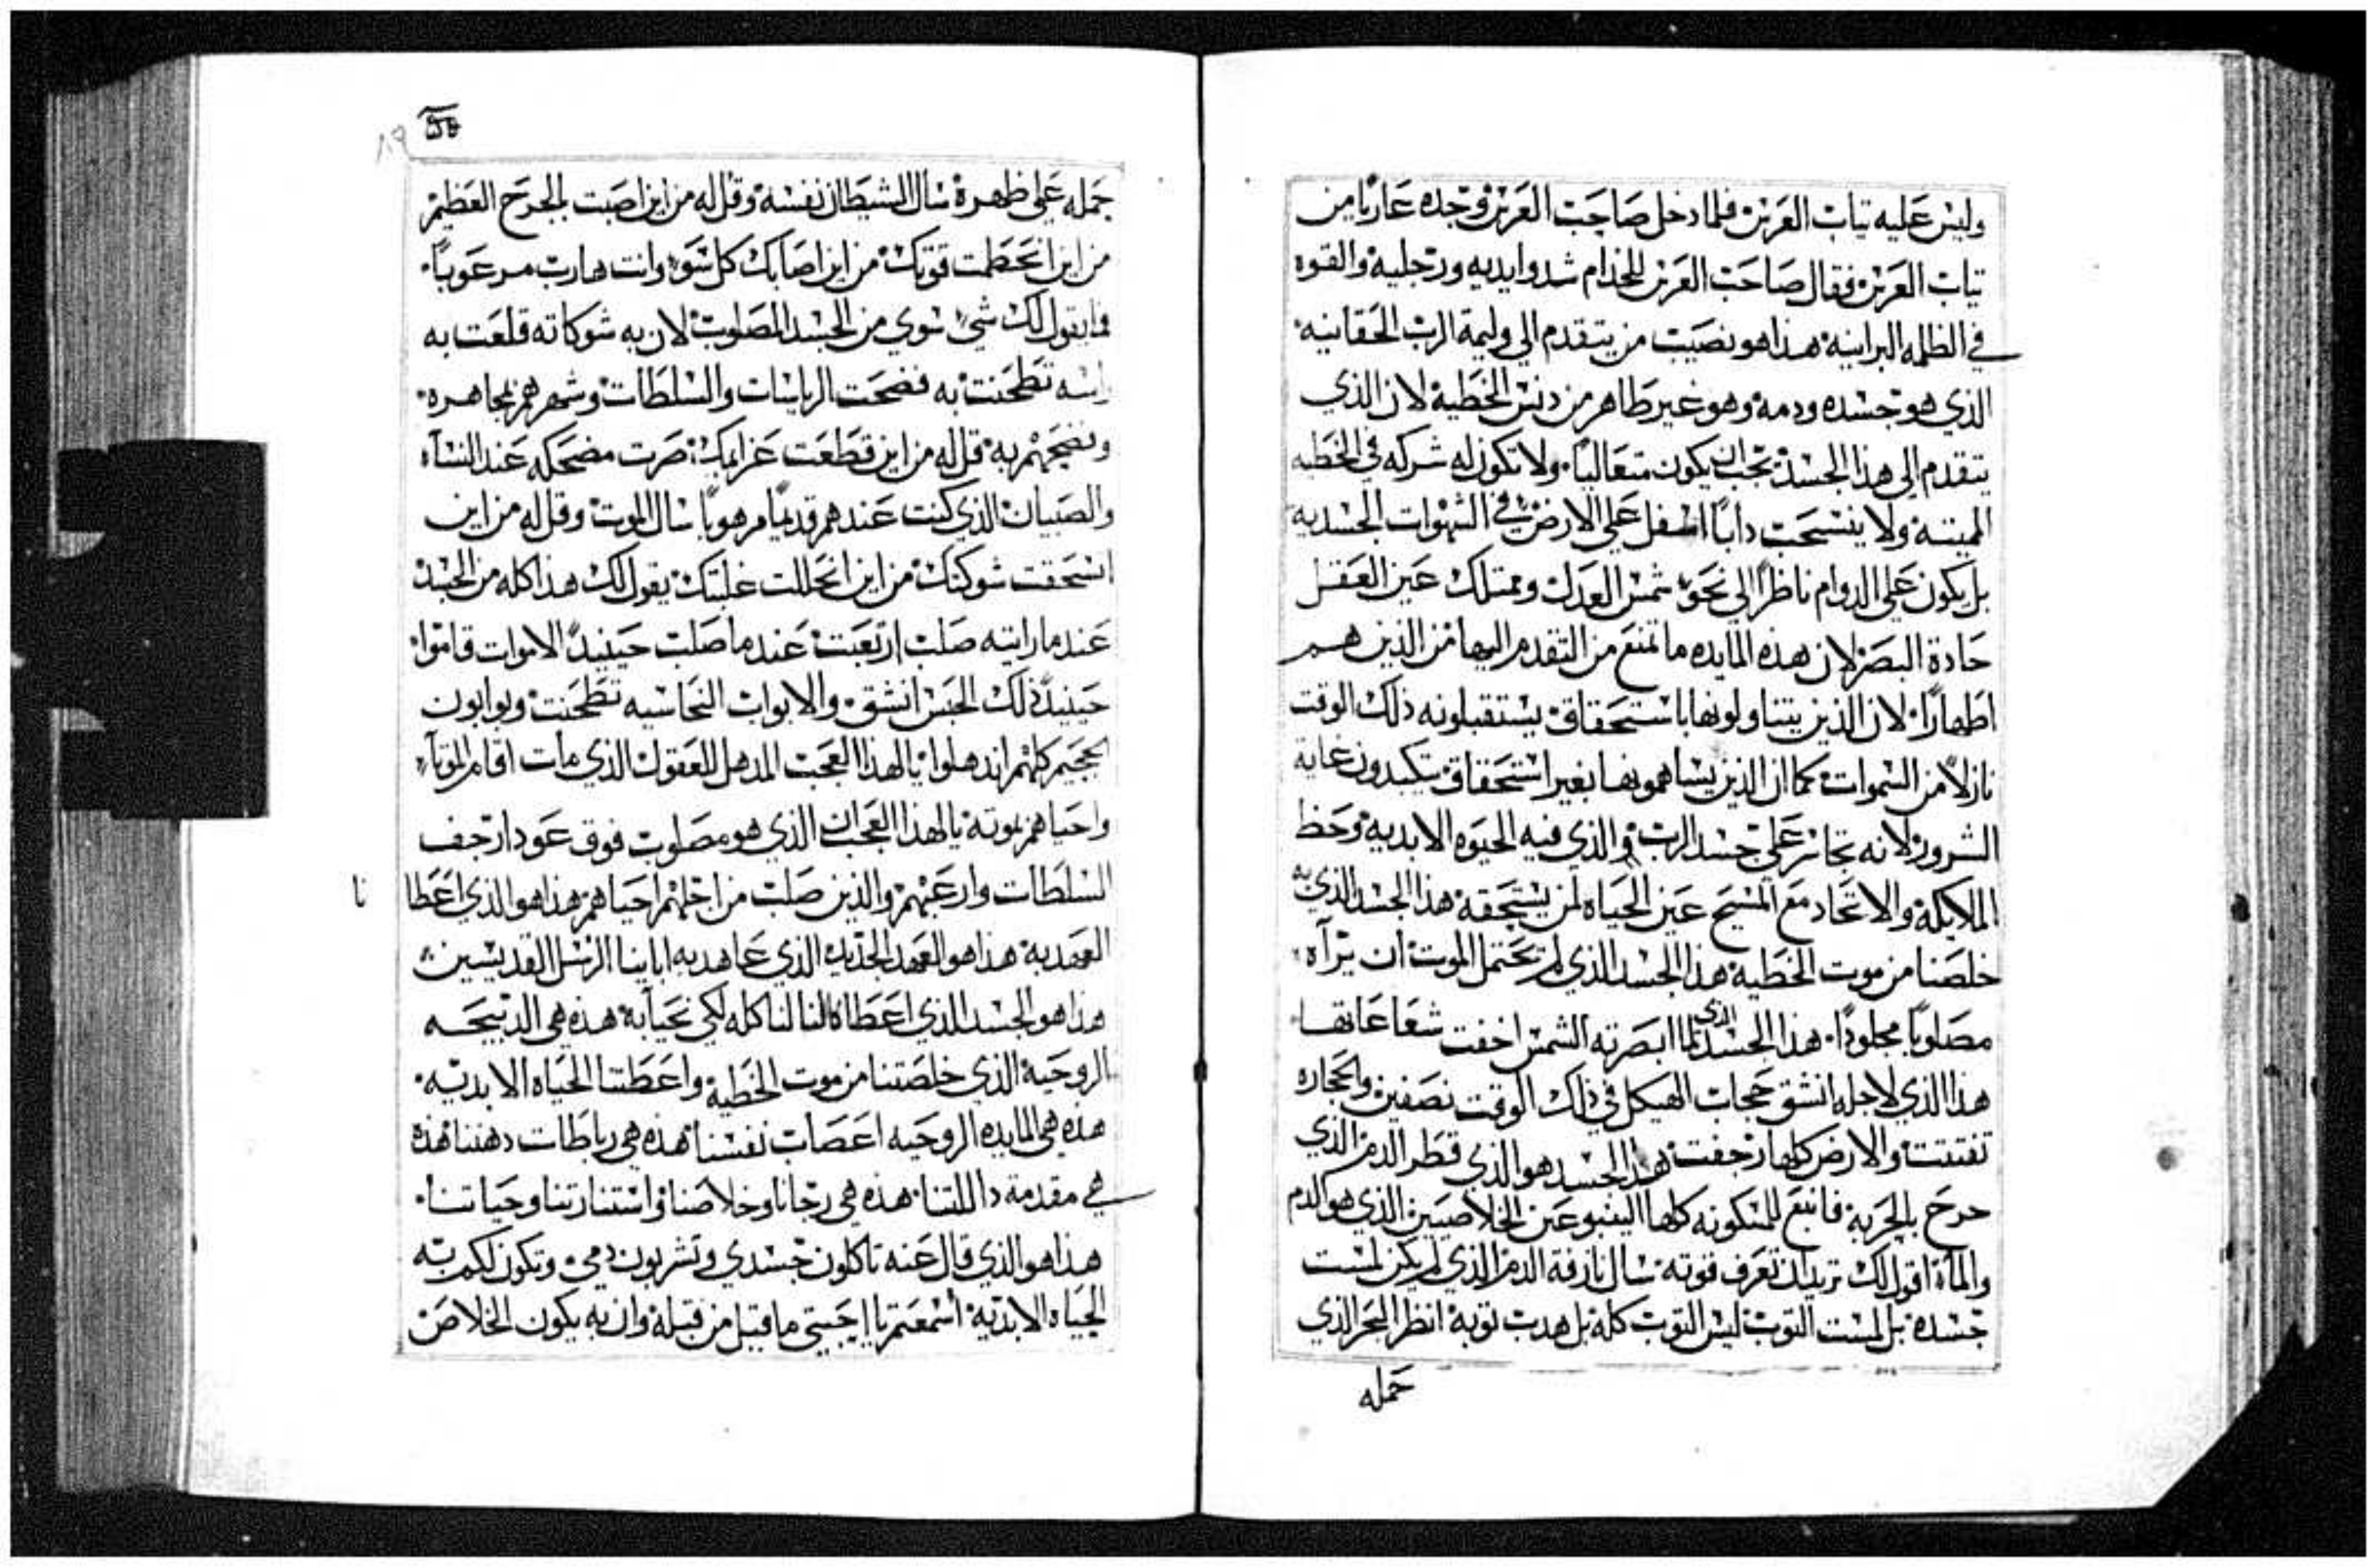 وليس عليه تياب العرس فلما دخل صاحب العرس وجده عاريا من
تياب العرس فقال صاحب العرس للخدام شدوا ايديه ورجليه والقوه
في الظلمه البرانيه هذا هو نصيب من يتقدم الي وليمة الرب الحقانيه
الذي هو جسده ودمه وهو غير طاهر من دنس الخطية لان الذي
يتقدم الي هذا الجسد يجب ان يكون متعاليا ولا تكون له شركه في الخطيه
المميته ولا ينسحب دابا اسفل علي الارض في الشهوات الجسديه
بل يكون علي الدوام ناظرا الي نحو شمس العدل ويمتلك عين العقل
حادة البصر لان هذه المايده ما تمنع من التقدم اليها من الذين هم
اطهارا لان الذين يتناولونها باستحقاق يستقبلونه ذلك الوقت
نازلا من السموات كما ان الذين يساهمونها بغير استحقاق يتكبدون غاية
الشرور لانه تجاسر علي جسد الرب والذي فيه الحيوه الابديه وحظ
الملايكة والاتحاد مع المسيح عين الحياه لمن يستحقه هذا الجسد الذي به
خلصنا من موت الخطية هذا الجسد الذي لم يحتمل الموت ان يراه
مصلوبا مجلودا هذا الجسد الذي لما ابصرته الشمس اخفت شعاعاتها
هذا الذي لاجله انشق حجاب الهيكل في ذلك الوقت نصفين والحجاره
تفتتت والارض كلها رجفت هذا الجسد هو الذي قطر الدم الذي
جرح بالحربه فانبع للمسكونه كلها الينبوعين الخلاصيين الذي هو الدم
والماء اقول لك تريد ان تعرف قوته سال نازفة الدم الذي لم يكن لمست
جسده بل لمست التوب ليس التوب كله بل هدب توبه انظر البحر الذي
حمله
حمله علي ظهره سال الشيطان نفسه وقل له من اين اصبت بالجرح العظيم
من اين انحطمت قوتك من اين اصابك كل سوء وانت هارب مرعوبا
فما يقول لك شي سوي من الجسد المصلوب لان به شوكاته قلعت به
راسه تطحنت به فضحت الرياسات والسلطات وشهرهم بمجاهره
وفضحهم به قل له من اين قطعت عزايمك صرت مضحكه عند النساء
والصبيان الذي كنت عندهم قديما مرهوبا سال الموت وقل له من اين
انسحقت شوكتك من اين انحللت غلبتك يقول لك هذا كله من الجسد
عند ما رايته صلب ارتعبت عند ما صلب حينيد الاموات قاموا
حينيد ذلك الحبس انشق والابواب النحاسيه تطحنت وبوابون
الجحيم كلهم اندهلوا يا لهذا العجب المدهل للعقول الذي مات اقام الموتاء
واحياهم بموته يا لهذا العجب ان الذي هو مصلوب فوق عود ارجف
السلطات وارعبهم والذين صلب من اجلهم احياهم هذا هو الذي اعطا نا
العهد به هذا هو العهد الجديد الذي عاهد به ابايينا الرسل القديسين
هذا هو الجسد الذي اعطاه لنا لناكله لكي نحيا به هذه هي الدبيحه
الروحية الذي خلصتنا من موت الخطية واعطتنا الحياه الابديه
هذه هي المايده الروحيه اعصاب نفسنا هذه هي رباطات دهننا هذه
هي مقدمة داللتنا هذه هي رجانا وخلاصنا واستنارتنا وحياتنا
هذا هو الذي قال عنه تاكلون جسدي وتشربون دمي وتكون لكم به
الحياه الابديه اسمعتم يا احبتي ما قيل من قبله وان به يكون الخلاص